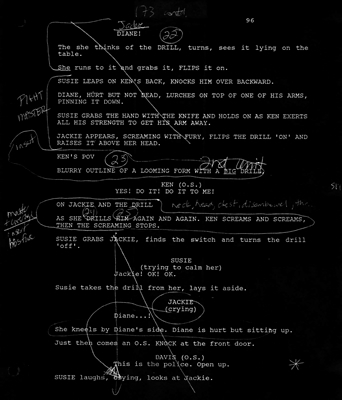 96
Jackie
DIANE!
The she thinks of the DRILL, turns, sees it lying on the
table.
She runs to it and grabs it, FLIPS it on.
SUSIE LEAPS ON KEN'S BACK, KNOCKS HIM OVER BACKWARD.
FIGHT
DIANE, HURT BUT NOT DEAD, LURCHES ON TOP OF ONE OF HIS ARMS,
PINNING IT DOWN.
SUSIE GRABS THE HAND WITH THE KNIFE AND HOLDS ON AS KEN EXERTS
ALL HIS STRENGTH TO GET HIS ARM AWAY.
JACKIE APPEARS, SCREAMING WITH FURY, FLIPS THE DRILL 'ON' AND
RAISES IT ABOVE HER HEAD.
insert
KEN'S POV
2nd unit
BLURRY OUTLINE OF A LOOMING FORM WITH A BIG DRILL,
KEN (O.S.)
YES! DO IT! DO IT TO ME!
ON JACKIE AND THE DRILL
neck, head, chest,
AS SHE DRILLS HIM AGAIN AND AGAIN. KEN SCREAMS AND SCREAMS,
THEN THE SCREAMING STOPS.
SUSIE GRABS JACKIE, finds the switch and turns the drill
'off'.
SUSIE
(trying to calm her)
Jackie! OK! OK.
Susie takes the drill from her, lays it aside.
JACKIE
(crying)
Diane...!
She kneels by Diane's side. Diane is hurt but sitting up.
Just then comes an O.S. KNOCK at the front door.
DAVIS (O.S.)
This is the police. Open up.
SUSIE laughs, crying, looks at Jackie.